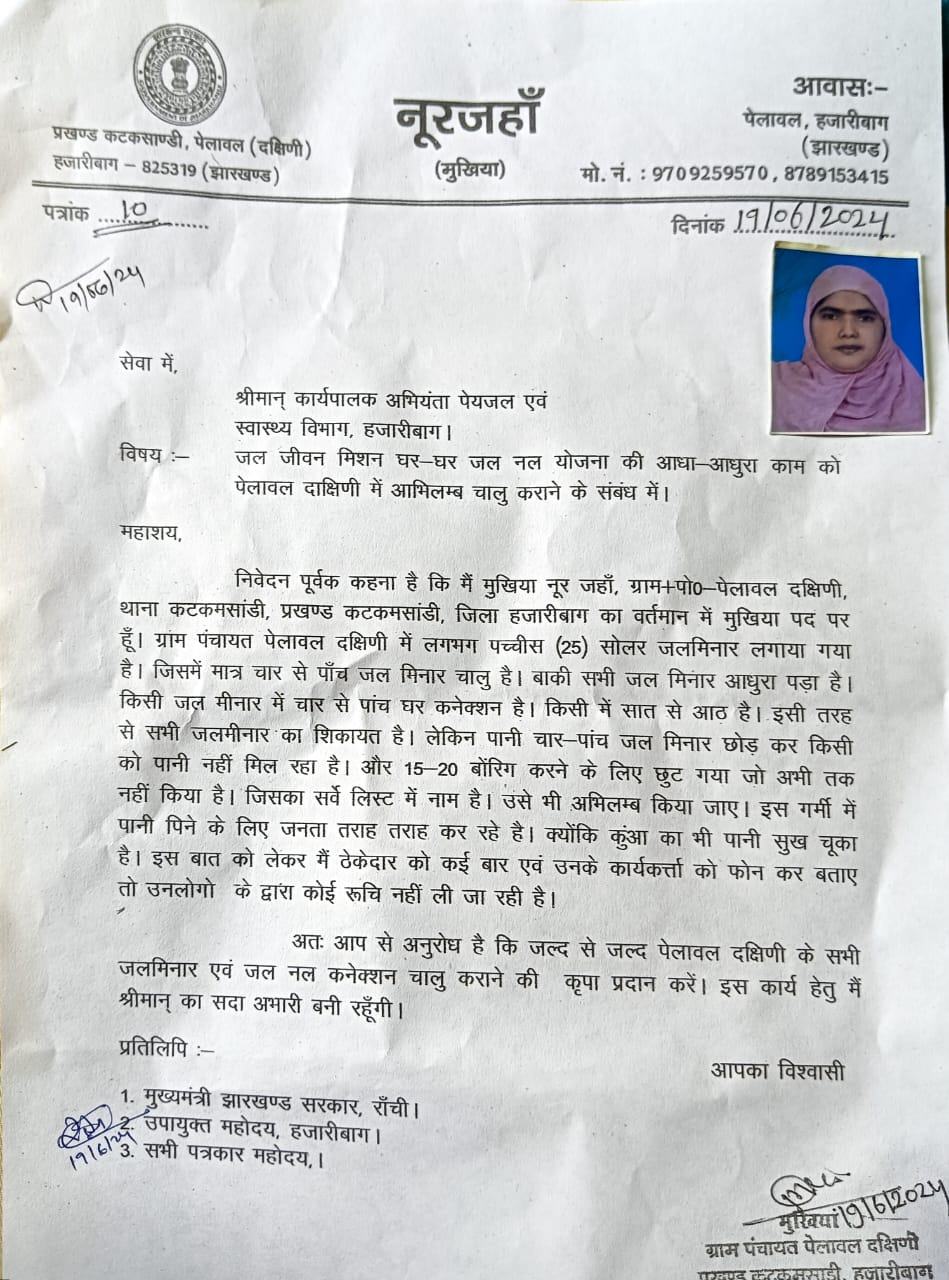 नूरजहाँ
(मुखिया)
प्रखण्ड कटकसाण्डी, पेलावल (दक्षिणी)
हजारीबाग – 825319 (झारखण्ड)
आवासः–
पेलावल, हजारीबाग
(झारखण्ड)
मो. नं. : 9709259570, 8789153415
पत्रांक ...10...........
दिनांक 19/06/2024
19/06/24
सेवा में,
श्रीमान् कार्यपालक अभियंता पेयजल एवं
स्वास्थ्य विभाग, हजारीबाग।
विषय :– जल जीवन मिशन घर–घर जल नल योजना की आधा–आधुरा काम को
पेलावल दाक्षिणी में आभिलम्ब चालु कराने के संबंध में।
महाशय,
निवेदन पूर्वक कहना है कि मैं मुखिया नूर जहाँ, ग्राम+पो0–पेलावल दक्षिणी,
थाना कटकमसांडी, प्रखण्ड कटकमसांडी, जिला हजारीबाग का वर्तमान में मुखिया पद पर
हूँ। ग्रांम पंचायत पेलावल दक्षिणी में लगभग पच्चीस (25) सोलर जलमिनार लगाया गया
है। जिसमें मात्र चार से पाँच जल मिनार चालु है। बाकी सभी जल मिनार आधुरा पड़ा है।
किसी जल मीनार में चार से पांच घर कनेक्शन है। किसी में सात से आठ है। इसी तरह
से सभी जलमीनार का शिकायत है। लेकिन पानी चार–पांच जल मिनार छोड़ कर किसी
को पानी नहीं मिल रहा है। और 15–20 बोंरिग करने के लिए छुट गया जो अभी तक
नहीं किया है। जिसका सर्वे लिस्ट में नाम है। उसे भी अभिलम्ब किया जाए। इस गर्मी में
पानी पिने के लिए जनता तराह तराह कर रहे है। क्योंकि कुंआ का भी पानी सुख चूका
है। इस बात को लेकर मैं ठेकेदार को कई बार एवं उनके कार्यकर्त्ता को फोन कर बताए
तो उनलोगो के द्वारा कोई रूचि नहीं ली जा रही है।
अतः आप से अनुरोध है कि जल्द से जल्द पेलावल दक्षिणी के सभी
जलमिनार एवं जल नल कनेक्शन चालु कराने की कृपा प्रदान करें। इस कार्य हेतु मैं
श्रीमान् का सदा अभारी बनी रहूँगी।
प्रतिलिपि :–
आपका विश्वासी
1. मुख्यमंत्री झारखण्ड सरकार, राँची।
2. उपायुक्त महोदय, हजारीबाग।
3. सभी पत्रकार महोदय,।
19/6/24
मुखिया 19/6/2024
ग्राम पंचायत पेलावल दक्षिणी
प्रखण्ड कटकमसांडी, हजारीबाग